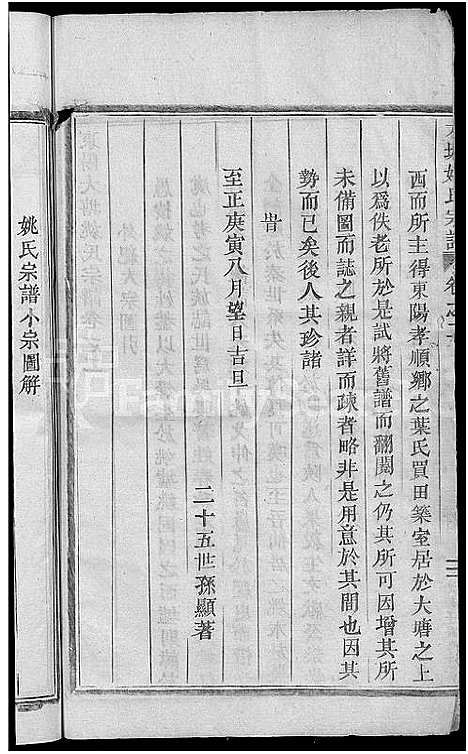 大塘姚氏宗譜
西而所主得東陽孝順鄉之葉氏買田築室居於大塘之上
以爲佚老所於是試將舊譜而翻閱之仍其所可因增其所
未備圖而誌之親者詳而疎者略非是用意於其間也因其
勢而已矣後人其珍諸
旹
至正庚寅八月望日吉旦
二十五世孫顯著
姚氏宗譜小宗圖解